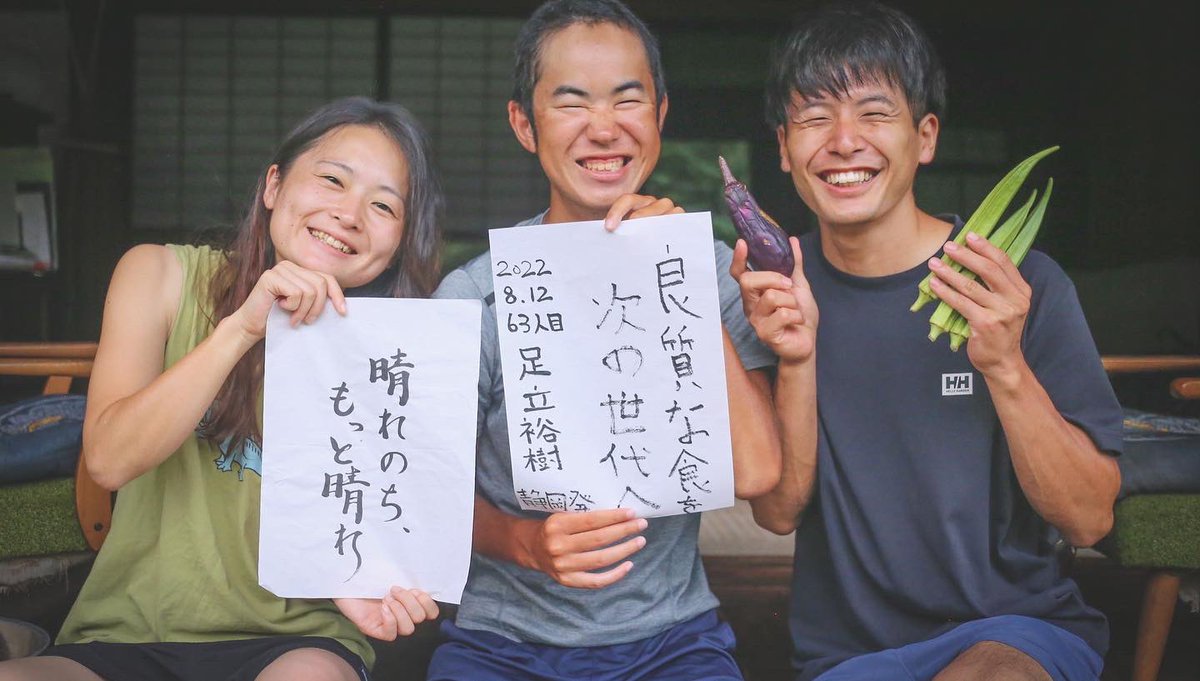 晴れのち、
もっと晴れ
良質な食を
次の世代へ
2022
8.12
63人目
足立裕樹
静岡発
HH
HELLY HANSEN